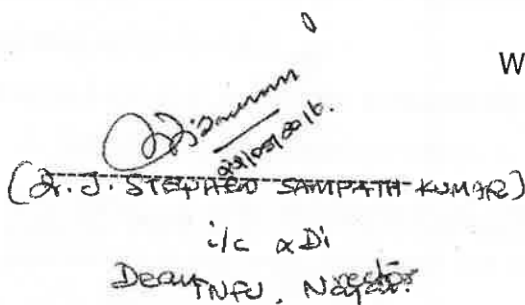 W
22/03/2016.
(Dr. J. STEPHEN SAMPATH KUMAR)
i/c
Dean
TNFU, Nagai.